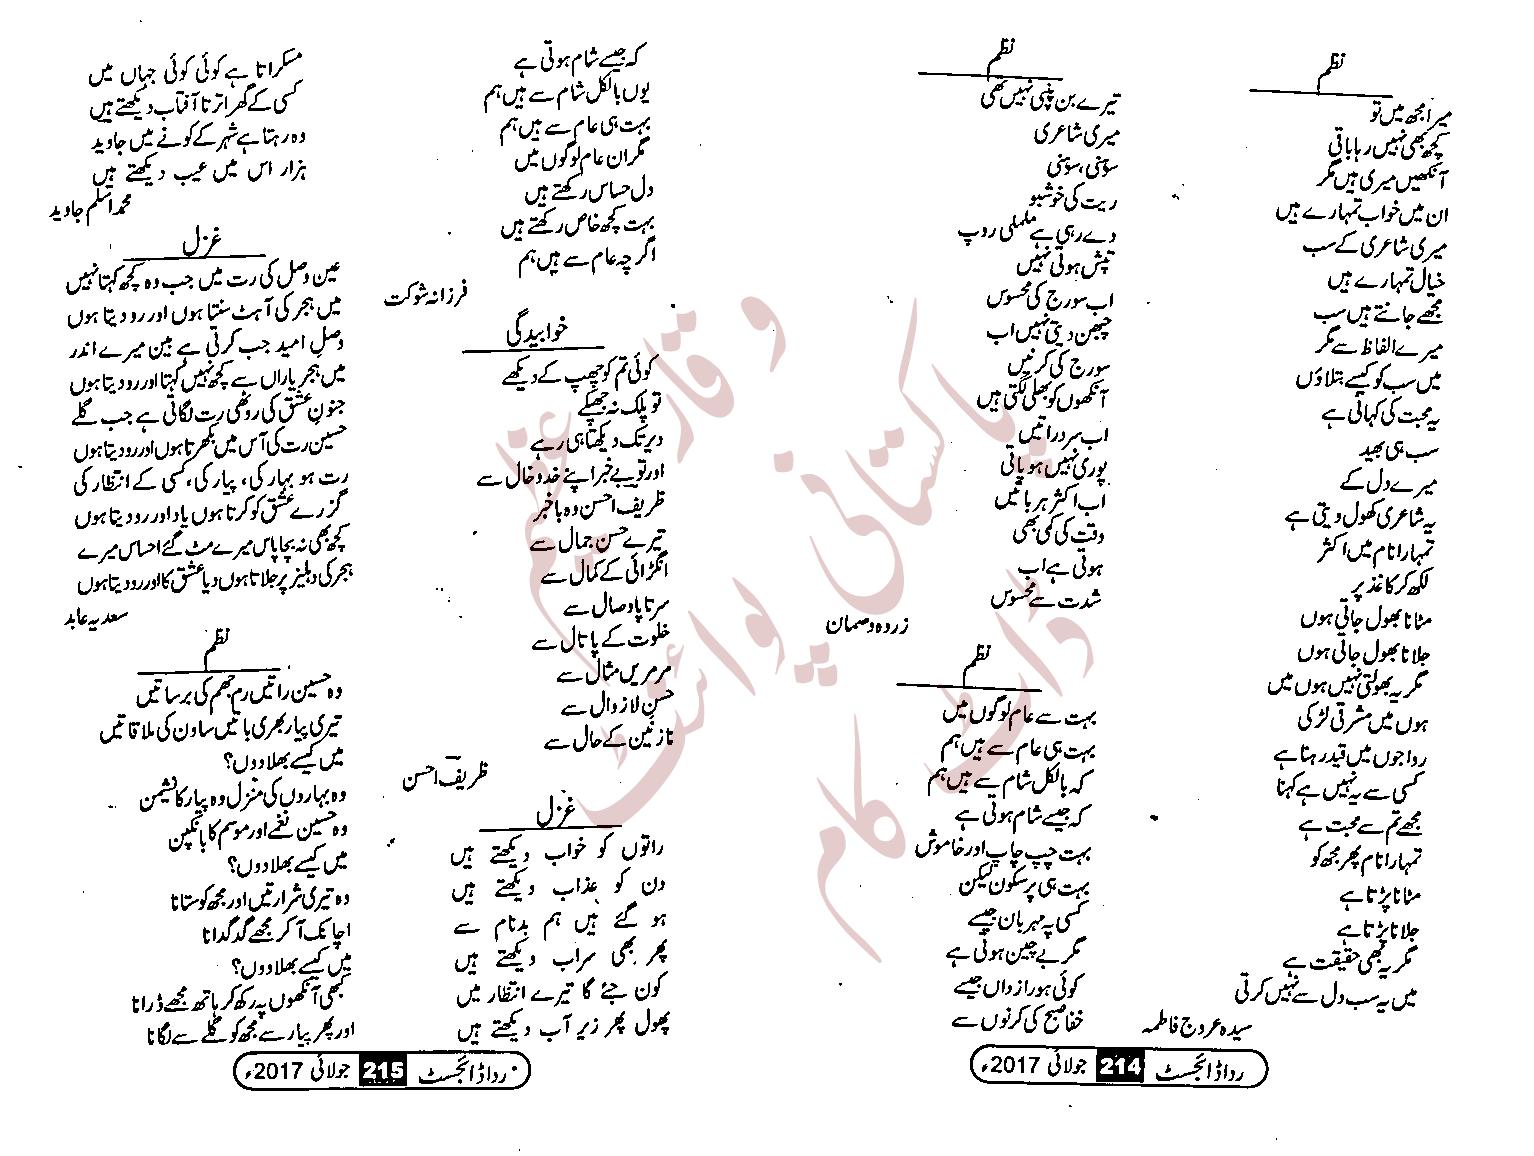 نظم
میرا مجھ میں تو
کچھ بھی نہیں رہا باقی
آنکھیں میری ہیں مگر
ان میں خواب تمہارے ہیں
میری شاعری کے سب
خیال تمہارے ہیں
مجھے جانتے ہیں سب
میرے الفاظ سے مگر
میں سب کو کیسے بتلاؤں
یہ محبت کی کہانی ہے
سب ہی بھید
میرے دل کے
یہ شاعری کھول دیتی ہے
تمہارا نام میں اکثر
لکھ کر کاغذ پر
مٹانا بھول جاتی ہوں
جلانا بھول جاتی ہوں
مگر یہ بھولتی نہیں ہوں میں
ہوں میں مشرقی لڑکی
رواجوں میں قید رہنا ہے
کسی سے یہ نہیں ہے کہنا
مجھے تم سے محبت ہے
تمہارا نام پھر مجھ کو
مٹانا پڑتا ہے
جلانا پڑتا ہے
مگر یہ بھی حقیقت ہے
میں یہ سب دل سے نہیں کرتی
سیدہ عروج فاطمہ
نظم
تیرے بن پنپی نہیں بھی
میری شاعری
سوہنی، سوہنی
ریت کی خوشبو
دے رہی ہے ململی روپ
تپش ہوتی نہیں
اب سورج کی محسوس
چبھن دیتی نہیں اب
سورج کی کرنیں
آنکھوں کو بھلی لگتی ہیں
اب سرد راتیں
پوری نہیں ہو پاتی
اب اکثر ہر باتیں
وقت کی کمی بھی
ہوتی ہے اب
شدت سے محسوس
زردہ وصمان
نظم
بہت سے عام لوگوں میں
بہت ہی عام سے ہیں ہم
کہ بالکل شام سے ہیں ہم
کہ جیسے شام ہوتی ہے
بہت چپ چاپ اور خاموش
بہت ہی پر سکون لیکن
کسی پہ مہربان جیسے
مگر بے چین ہوتی ہے
کوئی ہو رازداں جیسے
خفا صبح کی کرنوں سے
ردا ڈائجسٹ 214 جولائی 2017ء
کہ جیسے شام ہوتی ہے
یوں بالکل شام سے ہیں ہم
بہت ہی عام سے ہیں ہم
مگر ان عام لوگوں میں
دل حساس رکھتے ہیں
بہت کچھ خاص رکھتے ہیں
اگرچہ عام سے ہیں ہم
فرزانہ شوکت
خوابیدگی
کوئی تم کو چھپ کے دیکھے
تو پلک نہ جھپکے
دیر تک دیکھتا ہی رہے
اور تو بے خبر اپنے خدوخال سے
ظریف احسن وہ باخبر
تیرے حسن جمال سے
انگڑائی کے کمال سے
سرتا پا وصال سے
خلوت کے پاتال سے
مرمریں مثال سے
حسن لازوال سے
نازنین کے حال سے
ظریف احسن
غزل
راتوں کو خواب دیکھتے ہیں
دن کو عذاب دیکھتے ہیں
ہو گئے ہیں ہم بدنام سے
پھر بھی سراب دیکھتے ہیں
کون جئے گا تیرے انتظار میں
پھول پھر زیر آب دیکھتے ہیں
مسکراتا ہے کوئی کوئی جہاں میں
کسی کے گھر اترتا آفتاب دیکھتے ہیں
وہ رہتا ہے شہر کے کونے میں جاوید
ہزار اس میں عیب دیکھتے ہیں
محمد اسلم جاوید
غزل
عین وصل کی رت میں جب وہ کچھ کہتا نہیں
میں ہجر کی آہٹ سنتا ہوں اور رو دیتا ہوں
وصلِ امید جب کرتی ہے بین میرے اندر
میں ہجر یاراں سے کچھ نہیں کہتا اور رو دیتا ہوں
جنونِ عشق کی روٹھی رت لگاتی ہے جب گلے
حسین رت کی آس میں بکھرتا ہوں اور رو دیتا ہوں
رت ہو بہار کی، پیار کی، کسی کے انتظار کی
گزرے عشق کو کرتا ہوں یاد اور رو دیتا ہوں
کچھ بھی نہ بچا پاس میرے مٹ گئے احساس میرے
ہجر کی دہلیز پر جلاتا ہوں دیا عشق کا اور رو دیتا ہوں
سعدیہ عابد
نظم
وہ حسین راتیں رم جھم کی برساتیں
تیری پیار بھری باتیں ساون کی ملاقاتیں
میں کیسے بھلا دوں؟
وہ بہاروں کی منزل وہ پیار کا نشیمن
وہ حسین نغمے اور موسم کا بانکپن
میں کیسے بھلا دوں؟
وہ تیری شرارتیں اور مجھ کو ستانا
اچانک آ کر مجھے گدگدانا
میں کیسے بھلا دوں؟
کبھی آنکھوں پہ رکھ کر ہاتھ مجھے ڈرانا
اور پھر پیار سے مجھ کو گلے سے لگانا
ردا ڈائجسٹ 215 جولائی 2017ء
وقار عظیم
پاکستانی پوائنٹ
ڈاٹ کام